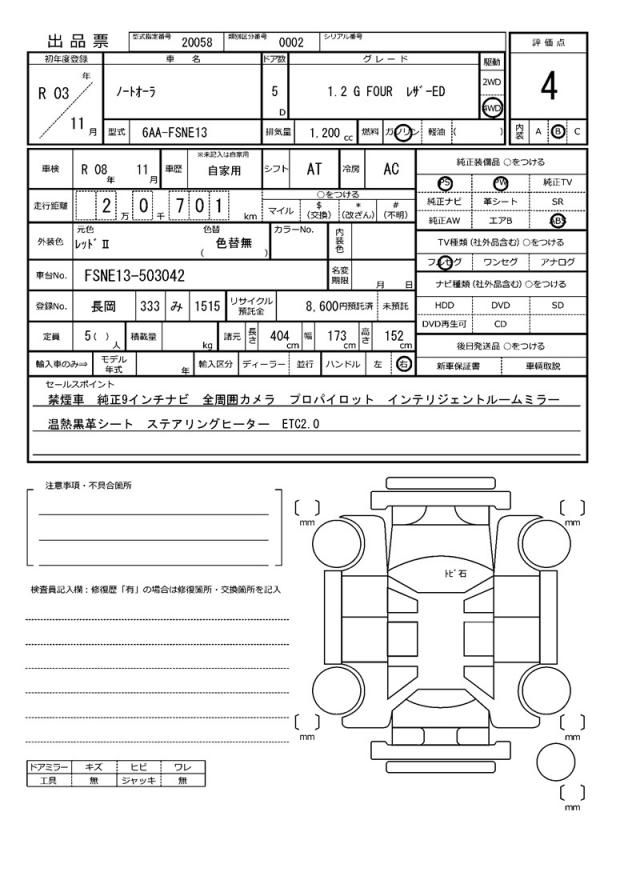 出品票 型式指定番号 20058 類別区分番号 0002 シリアル番号
評価点
4
初年度登録 車名 ドア数 グレード 駆動
R 03 年 11 月 ノートオーラ 5 D 1.2 G FOUR ﾚｻﾞｰED 2WD 4WD
型式 6AA-FSNE13 排気量 1.200 cc 燃料 ガソリン 軽油 ( ) 内装 A B C
車検 R 08 年 11 月 車歴 ※未記入は自家用 自家用 シフト AT 冷房 AC
純正装備品 ○をつける
PS PW 純正TV
純正ナビ 革シート SR
純正AW エアB ABS
走行距離 2 万 0 千 7 0 1 km ○をつける
マイル $ (交換) * (改ざん) # (不明)
外装色 元色 ﾚｯﾄﾞⅡ 色替 ( 色替無 ) カラーNo. 内装色
TV種類 (社外品含む) ○をつける
フルセグ ワンセグ アナログ
車台No. FSNE13-503042 名変期限 月 日
ナビ種類 (社外品含む) ○をつける
HDD DVD SD
DVD再生可 CD
登録No. 長岡 333 み 1515 リサイクル預託金 8,600円預託済 未預託
定員 5 ( ) 人 積載量 kg 諸元 長さ 404 cm 幅 173 cm 高さ 152 cm
後日発送品 ○をつける
新車保証書 車輌取説
輸入車のみ⇒ モデル年式 年 輸入区分 ディーラー 並行 ハンドル 左 右
セールスポイント
禁煙車 純正9インチナビ 全周囲カメラ プロパイロット インテリジェントルームミラー
温熱黒革シート ステアリングヒーター ETC2.0
注意事項・不具合箇所
mm
mm
ﾄﾋﾞ石
検査員記入欄：修復歴「有」の場合は修復箇所・交換箇所を記入
mm
mm
ドアミラー キズ ヒビ ワレ
工具 無 ジャッキ 無
mm